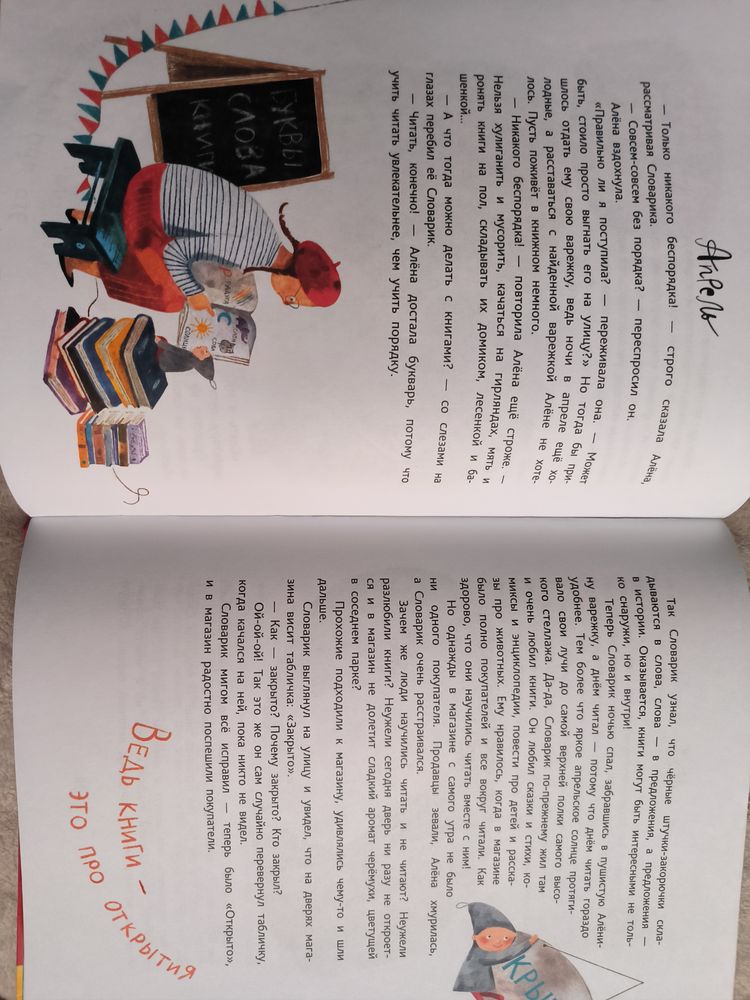 Апрель
— Только никакого беспорядка! — строго сказала Алёна,
рассматривая Словарика.
— Совсем-совсем без порядка? — переспросил он.
Алёна вздохнула.
«Правильно ли я поступила? — переживала она. — Может
быть, стоило просто выгнать его на улицу?» Но тогда бы при-
шлось отдать ему свою варежку, ведь ночи в апреле ещё хо-
лодные, а расставаться с найденной варежкой Алёне не хоте-
лось. Пусть поживёт в книжном немного.
— Никакого беспорядка! — повторила Алёна ещё строже. —
Нельзя хулиганить и мусорить, качаться на гирляндах, мять и
ронять книги на пол, складывать их домиком, лесенкой и ба-
шенкой...
— А что тогда можно делать с книгами? — со слезами на
глазах перебил её Словарик.
— Читать, конечно! — Алёна достала букварь, потому что
учить читать увлекательнее, чем учить порядку.
БУКВЫ
СЛОВА
КНИГИ
Я
Так Словарик узнал, что чёрные штучки-закорючки скла-
дываются в слова, слова — в предложения, а предложения —
в истории. Оказывается, книги могут быть интересными не толь-
ко снаружи, но и внутри!
Теперь Словарик ночью спал, забравшись в пушистую Алёни-
ну варежку, а днём читал — потому что днём читать гораздо
удобнее. Тем более что яркое апрельское солнце протяги-
вало свои лучи до самой верхней полки самого высо-
кого стеллажа. Да-да, Словарик по-прежнему жил там
и очень любил книги. Он любил сказки и стихи, ко-
миксы и энциклопедии, повести про детей и расска-
зы про животных. Ему нравилось, когда в магазине
было полно покупателей и все вокруг читали. Как
здорово, что они научились читать вместе с ним!
Но однажды в магазине с самого утра не было
ни одного покупателя. Продавцы зевали, Алёна хмурилась,
а Словарик очень расстраивался.
Зачем же люди научились читать и не читают? Неужели
разлюбили книги? Неужели сегодня дверь ни разу не откроет-
ся и в магазин не долетит сладкий аромат черёмухи, цветущей
в соседнем парке?
Прохожие подходили к магазину, удивлялись чему-то и шли
дальше.
Словарик выглянул на улицу и увидел, что на дверях мага-
зина висит табличка: «Закрыто».
— Как — закрыто? Почему закрыто? Кто закрыл?
Ой-ой-ой! Так это же он сам случайно перевернул табличку,
когда качался на ней, пока никто не видел.
Словарик мигом всё исправил — теперь было «Открыто»,
и в магазин радостно поспешили покупатели.
Ведь книги —
это про открытия